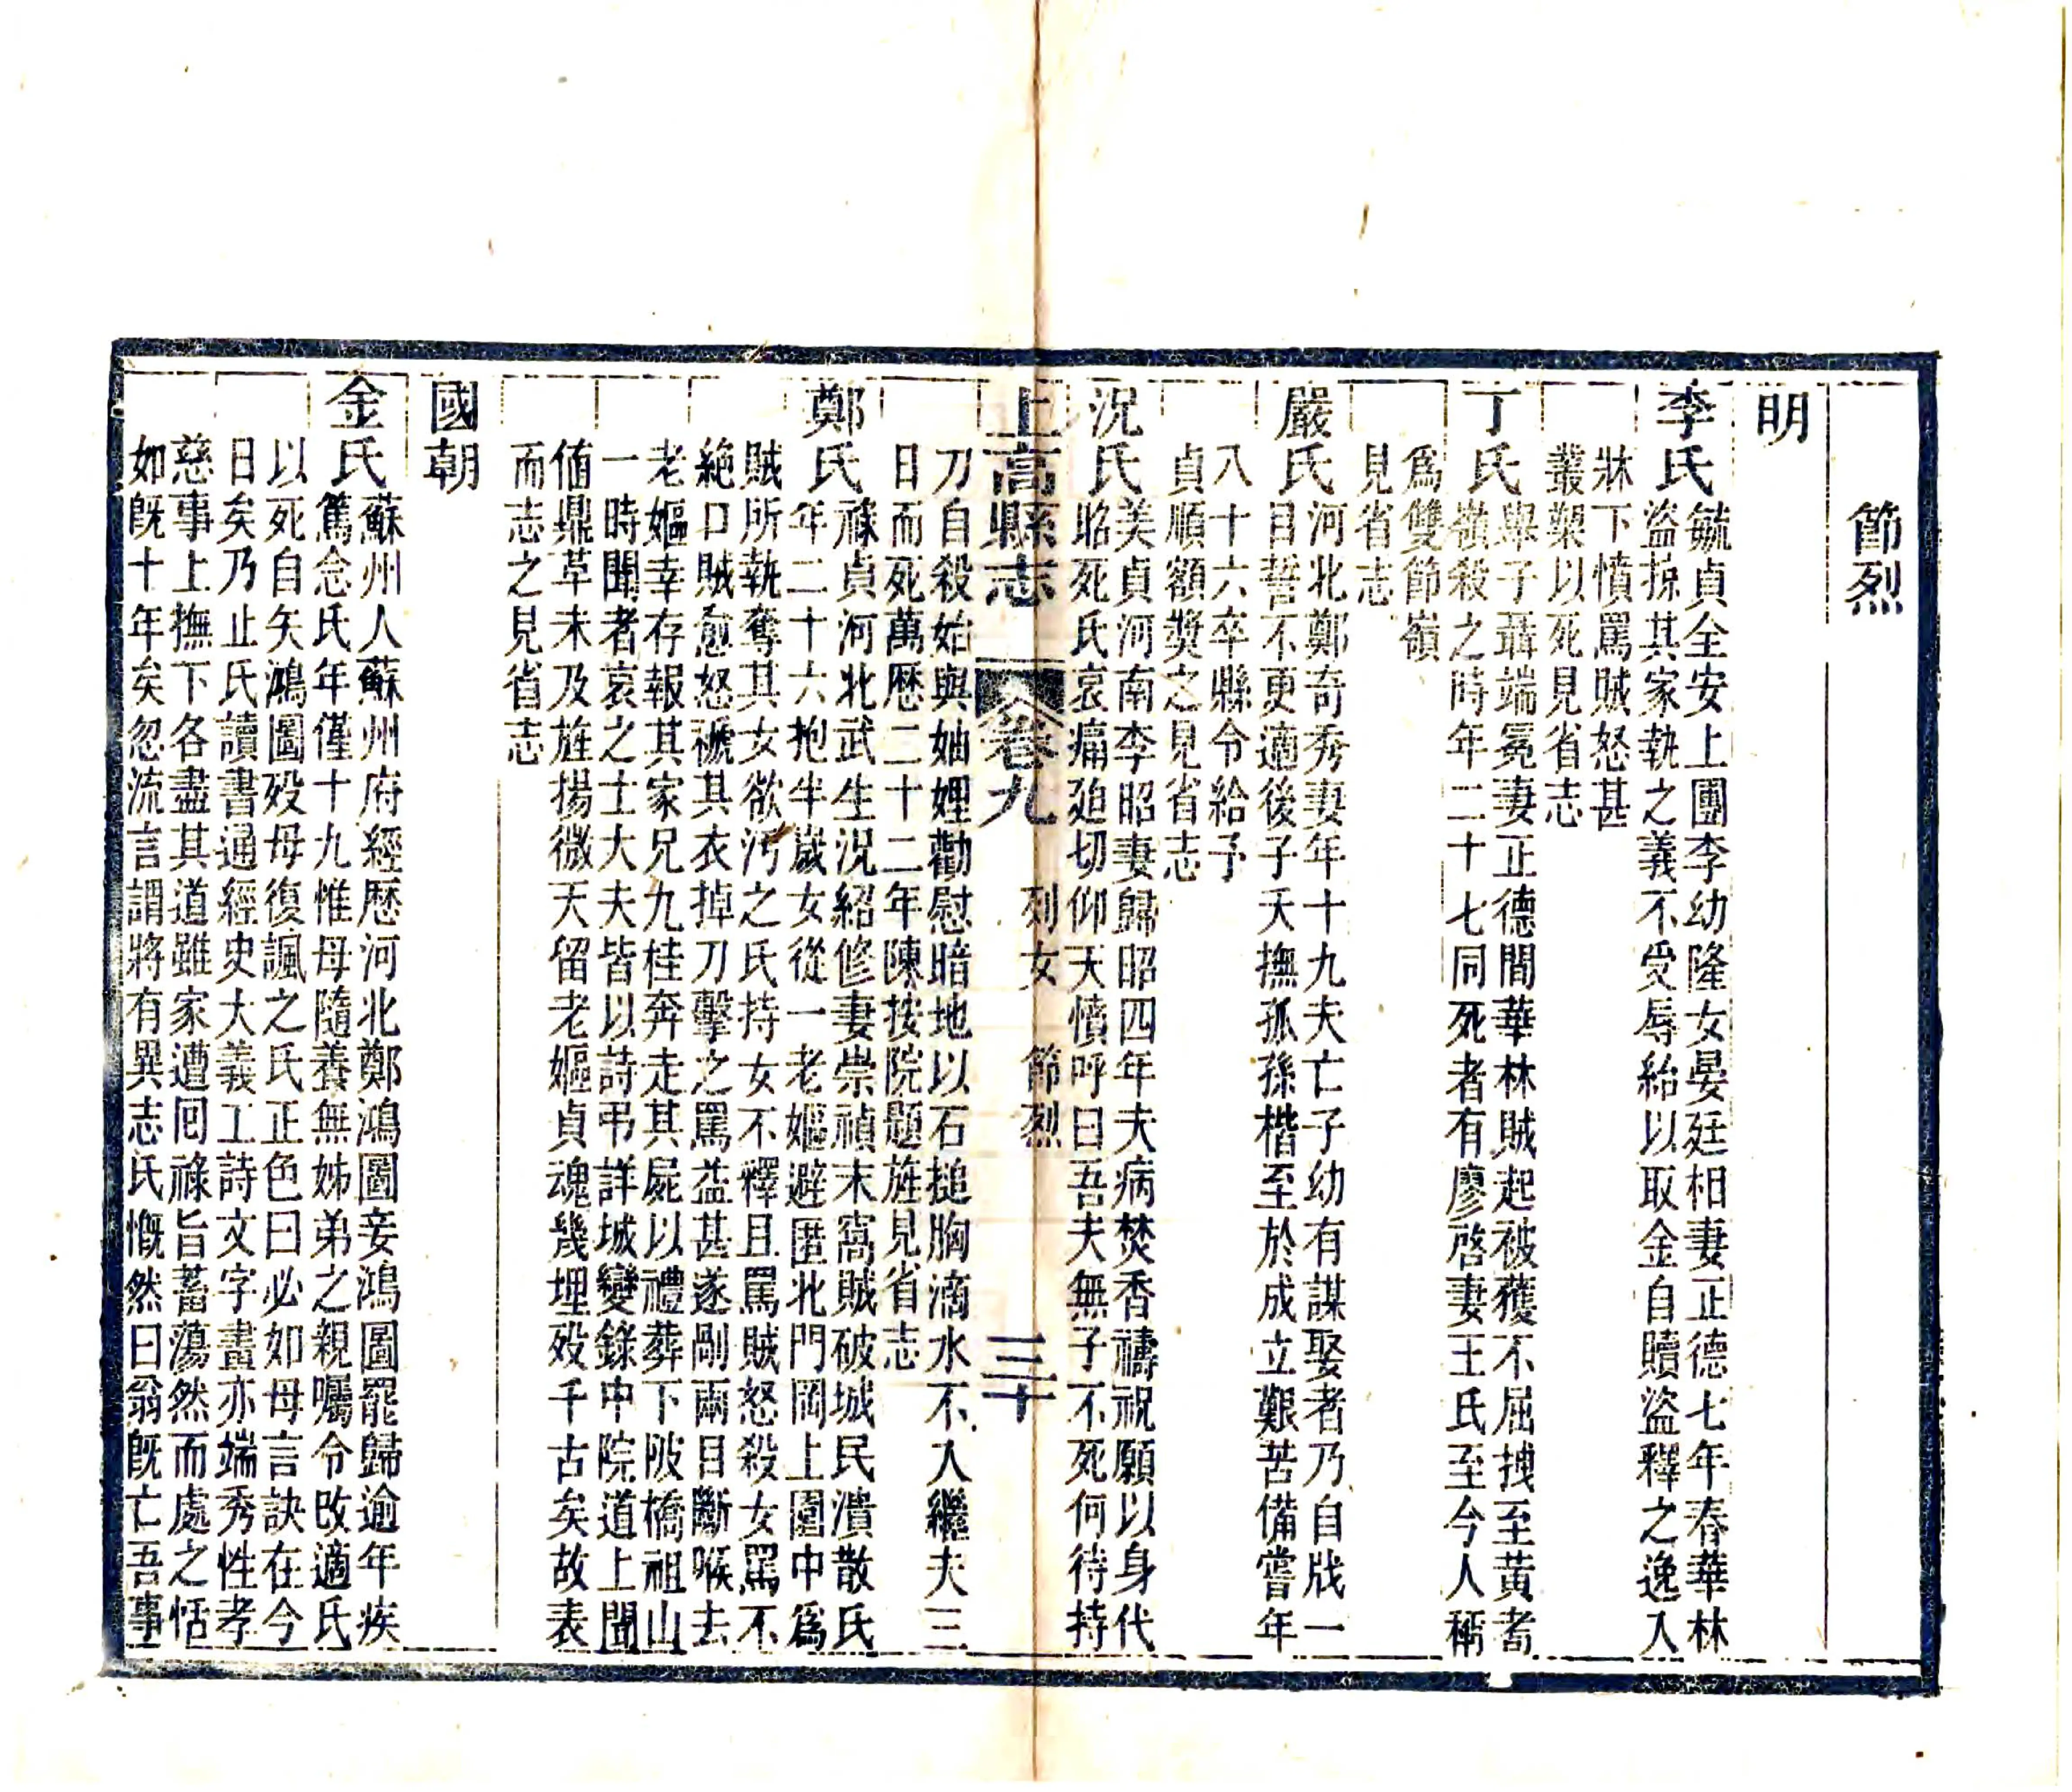 節烈
明
李氏毓貞全安上團李幼隆女晏廷相妻正德七年春華林
盜掠其家執之義不受辱紿以取金自贖盜釋之逸入
牀下憤罵賊怒甚
叢槊以死見省志
丁氏舉子聶端冕妻正德間華林賊起被獲不屈拽至黃耆
嶺殺之時年二十七同死者有廖啓妻王氏至今人稱
爲雙節嶺
見省志
嚴氏河北鄭奇秀妻年十九夫亡子幼有謀娶者乃自戕一
目誓不更適後子夭撫孤孫楷至於成立艱苦備嘗年
八十六卒縣令給予
貞順額獎之見省志
況氏美貞河南李昭妻歸昭四年夫病焚香禱祝願以身代
昭死氏哀痛廹切仰天憤呼曰吾夫無子不死何待持
上高縣志 卷九 列女 節烈 三十
刀自殺始與妯娌勸慰暗地以石搥胸滴水不入繼夫三
日而死萬歷二十二年陳按院題旌見省志
鄭氏祿貞河北武生況紹修妻崇禎末窩賊破城民潰散氏
年二十六抱半歲女從一老嫗避匿北門岡上圍中爲
賊所執奪其女欲汚之氏持女不釋且罵賊怒殺女罵不
絶口賊愈怒褫其衣掉刀擊之罵益甚遂剮兩目斷喉去
老嫗幸存報其家兄九桂奔走其屍以禮葬下陂橋祖山
一時聞者哀之士大夫皆以詩弔詳城變錄中院道上聞
値鼎革未及旌揚微天留老嫗貞魂幾埋歿千古矣故表
而志之見省志
國朝
金氏蘇州人蘇州府經歷河北鄭鴻圖妾鴻圖罷歸逾年疾
篤念氏年僅十九惟母隨養無姊弟之親囑令改適氏
以死自矢鴻圖歿母復諷之氏正色曰必如母言訣在今
日矣乃止氏讀書通經史大義工詩文字畫亦端秀性孝
慈事上撫下各盡其道雖家遭囘祿旨蓄蕩然而處之恬
如旣十年矣忽流言謂將有異志氏慨然曰翁旣亡吾事